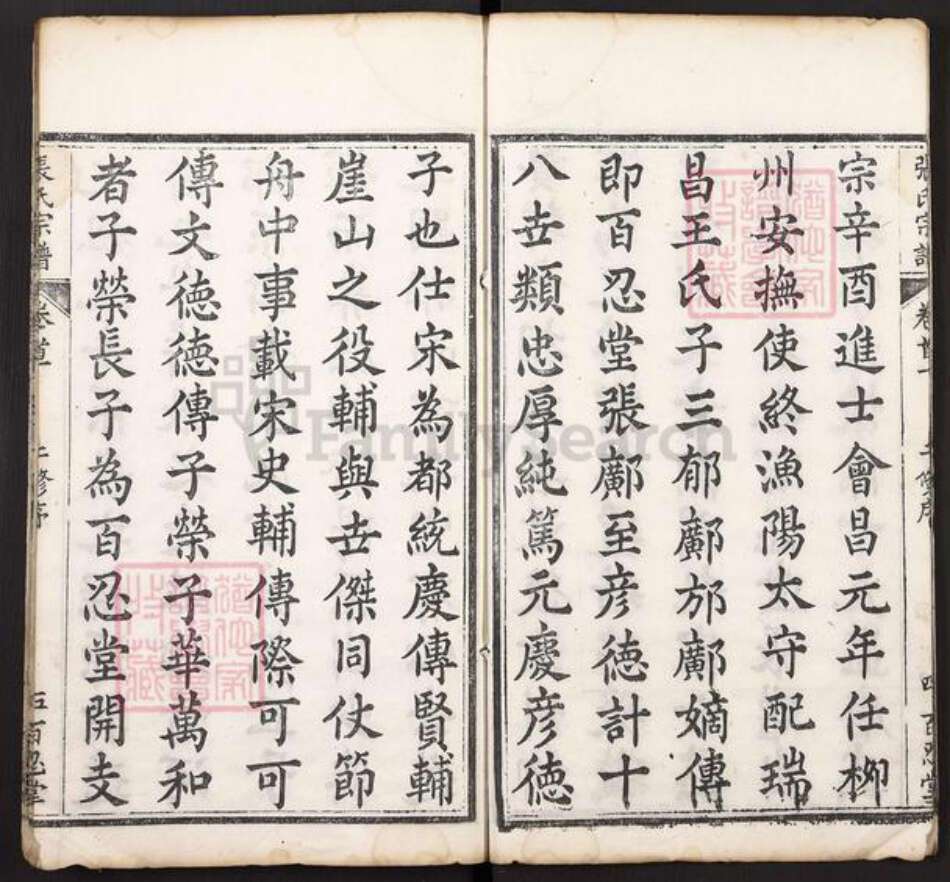 宗辛酉進士會昌元年任柳
州安撫使終漁陽太守配瑞
昌王氏子三郁鄺邡鄺嫡傳
即百忍堂張鄺至彦德計十
八世類忠厚純篤元慶彦德
子也仕宋為都統慶傳賢輔
崖山之役輔與世傑同仗節
舟中事載宋史輔傳際可可
傳文德德傳子榮子華萬和
者子榮長子為百忍堂開支
張氏宗譜 卷首一 二修序 五 百忍堂
FamilySearch